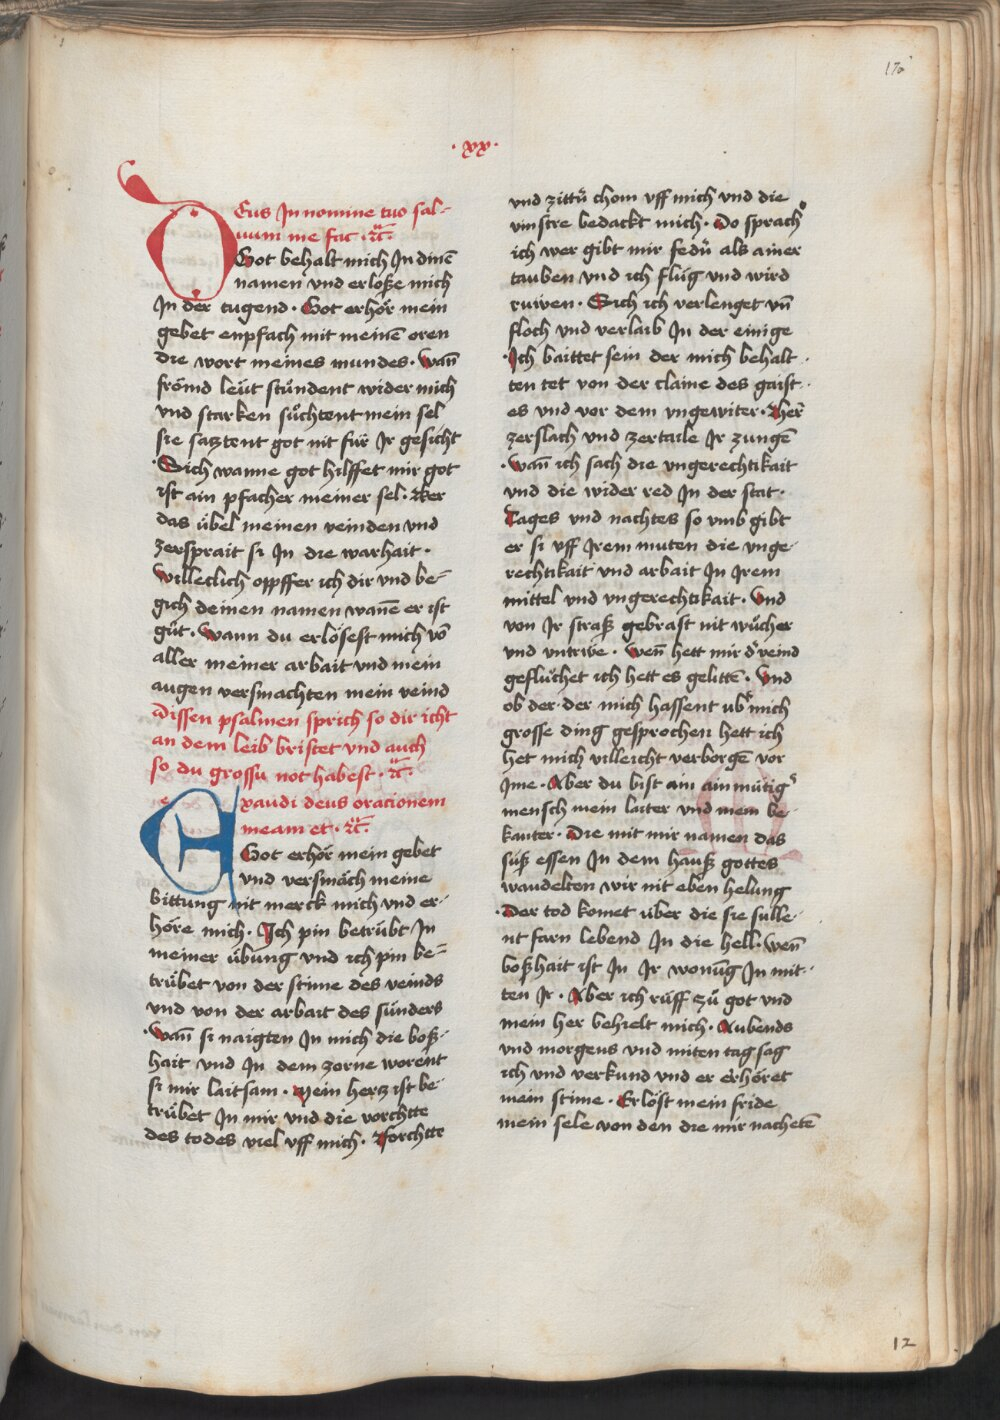 170
· xx ·
DEus In nomine tuo sal-
uum me fac · ꝛc̃ ·
Got behalt mich In dinē
namen vnd erloͤße mich
In der tugend · Got erhoͤr mein
gebet enpfach mit meinē oren
die wort meines mundes · wañ
froͤmd leüt stuͤndent wider mich
vnd starken suͦchtent mein sel
sie satztent got nit für Ir gesicht
· Sich wanne got hilffet mir got
ist ain pfacher meiner sel · Ker
das übel meinen veinden vnd
zersprait si In die warhait ·
willeclich oppffer ich dir vnd be-
gich deinen namen wanē er ist
guͦt · wann du erloͤsest mich vō
aller meiner arbait vnd mein
augen versmachten mein veind
Dissen psalmen sprich so dir icht
an dem leib bristet vnd auch
so du grossu not habest · ꝛc̃ ·
Exaudi deus orationem
meam et · ꝛc̃ ·
Got erhoͤr mein gebet
vnd versmäch meine
bittung nit merck mich vnd er-
hoͤre mich · Ich pin betruͤbt In
meiner uͤbung vnd ich pin be-
truͤbet von der stime des veinds
vnd von der arbait des sünders
· wañ si naigten In mich die boß-
hait vnd In dem zorne worent
si mir laitsam · Mein hertz ist be-
truͤbet In mir vnd die vorchtte
des todes viel vff mich · Forchtte
vnd zittr̃ chom vff mich vnd die
vinstre bedackt mich · Do sprach
ich wer gibt mir fedr̃ als ainer
tauben vnd ich fluͤg vnd wird
ruwen · Sich ich verlenget vñ
floch vnd verlaib In der einige
· Ich baittet sein der mich behalt
ten tet von der claine des gaist
es vnd vor dem vngewiter · Her̃
zerslach vnd zertaile Ir zungē
· wañ ich sach die vngerechtikait
vnd die wider red In der stat ·
Tages vnd nachtes so vmb gibt
er si vff Irem muten die vnge-
rechtikait vnd arbait In Irem
mittel vnd vngerechtikait · Vnd
von Ir straß gebrast nit wuͦcher
vnd vntrwe · weñ hett mir d' veind
gefluͦchet ich hett es gelittē · Vnd
ob der · der mich hassent ub' mich
grosse ding gesprochen hett ich
het mich villeicht verborgē vor
Ime · Aber du bist ain ainmütig'
mensch mein laiter vnd mein be-
kanter · Die mit mir namen das
suͤß essen In dem hauß gottes
wandelten wir mit eben helung
· Der tod komet über die sie sulle-
nt farn lebend In die hell · weñ
boßhait ist In Ir wonūg In mit-
ten Ir · Aber ich ruͤff zuͦ got vnd
mein her behielt mich · Aubends
vnd morgens vnd miten tag sag
ich vnd verkund vnd er erhoͤret
mein stime · Erloͤst mein fride
mein sele von den die mir nachetē
12